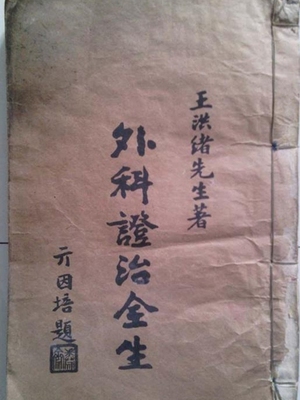 王洪绪先生著
外科證治全生
因培題